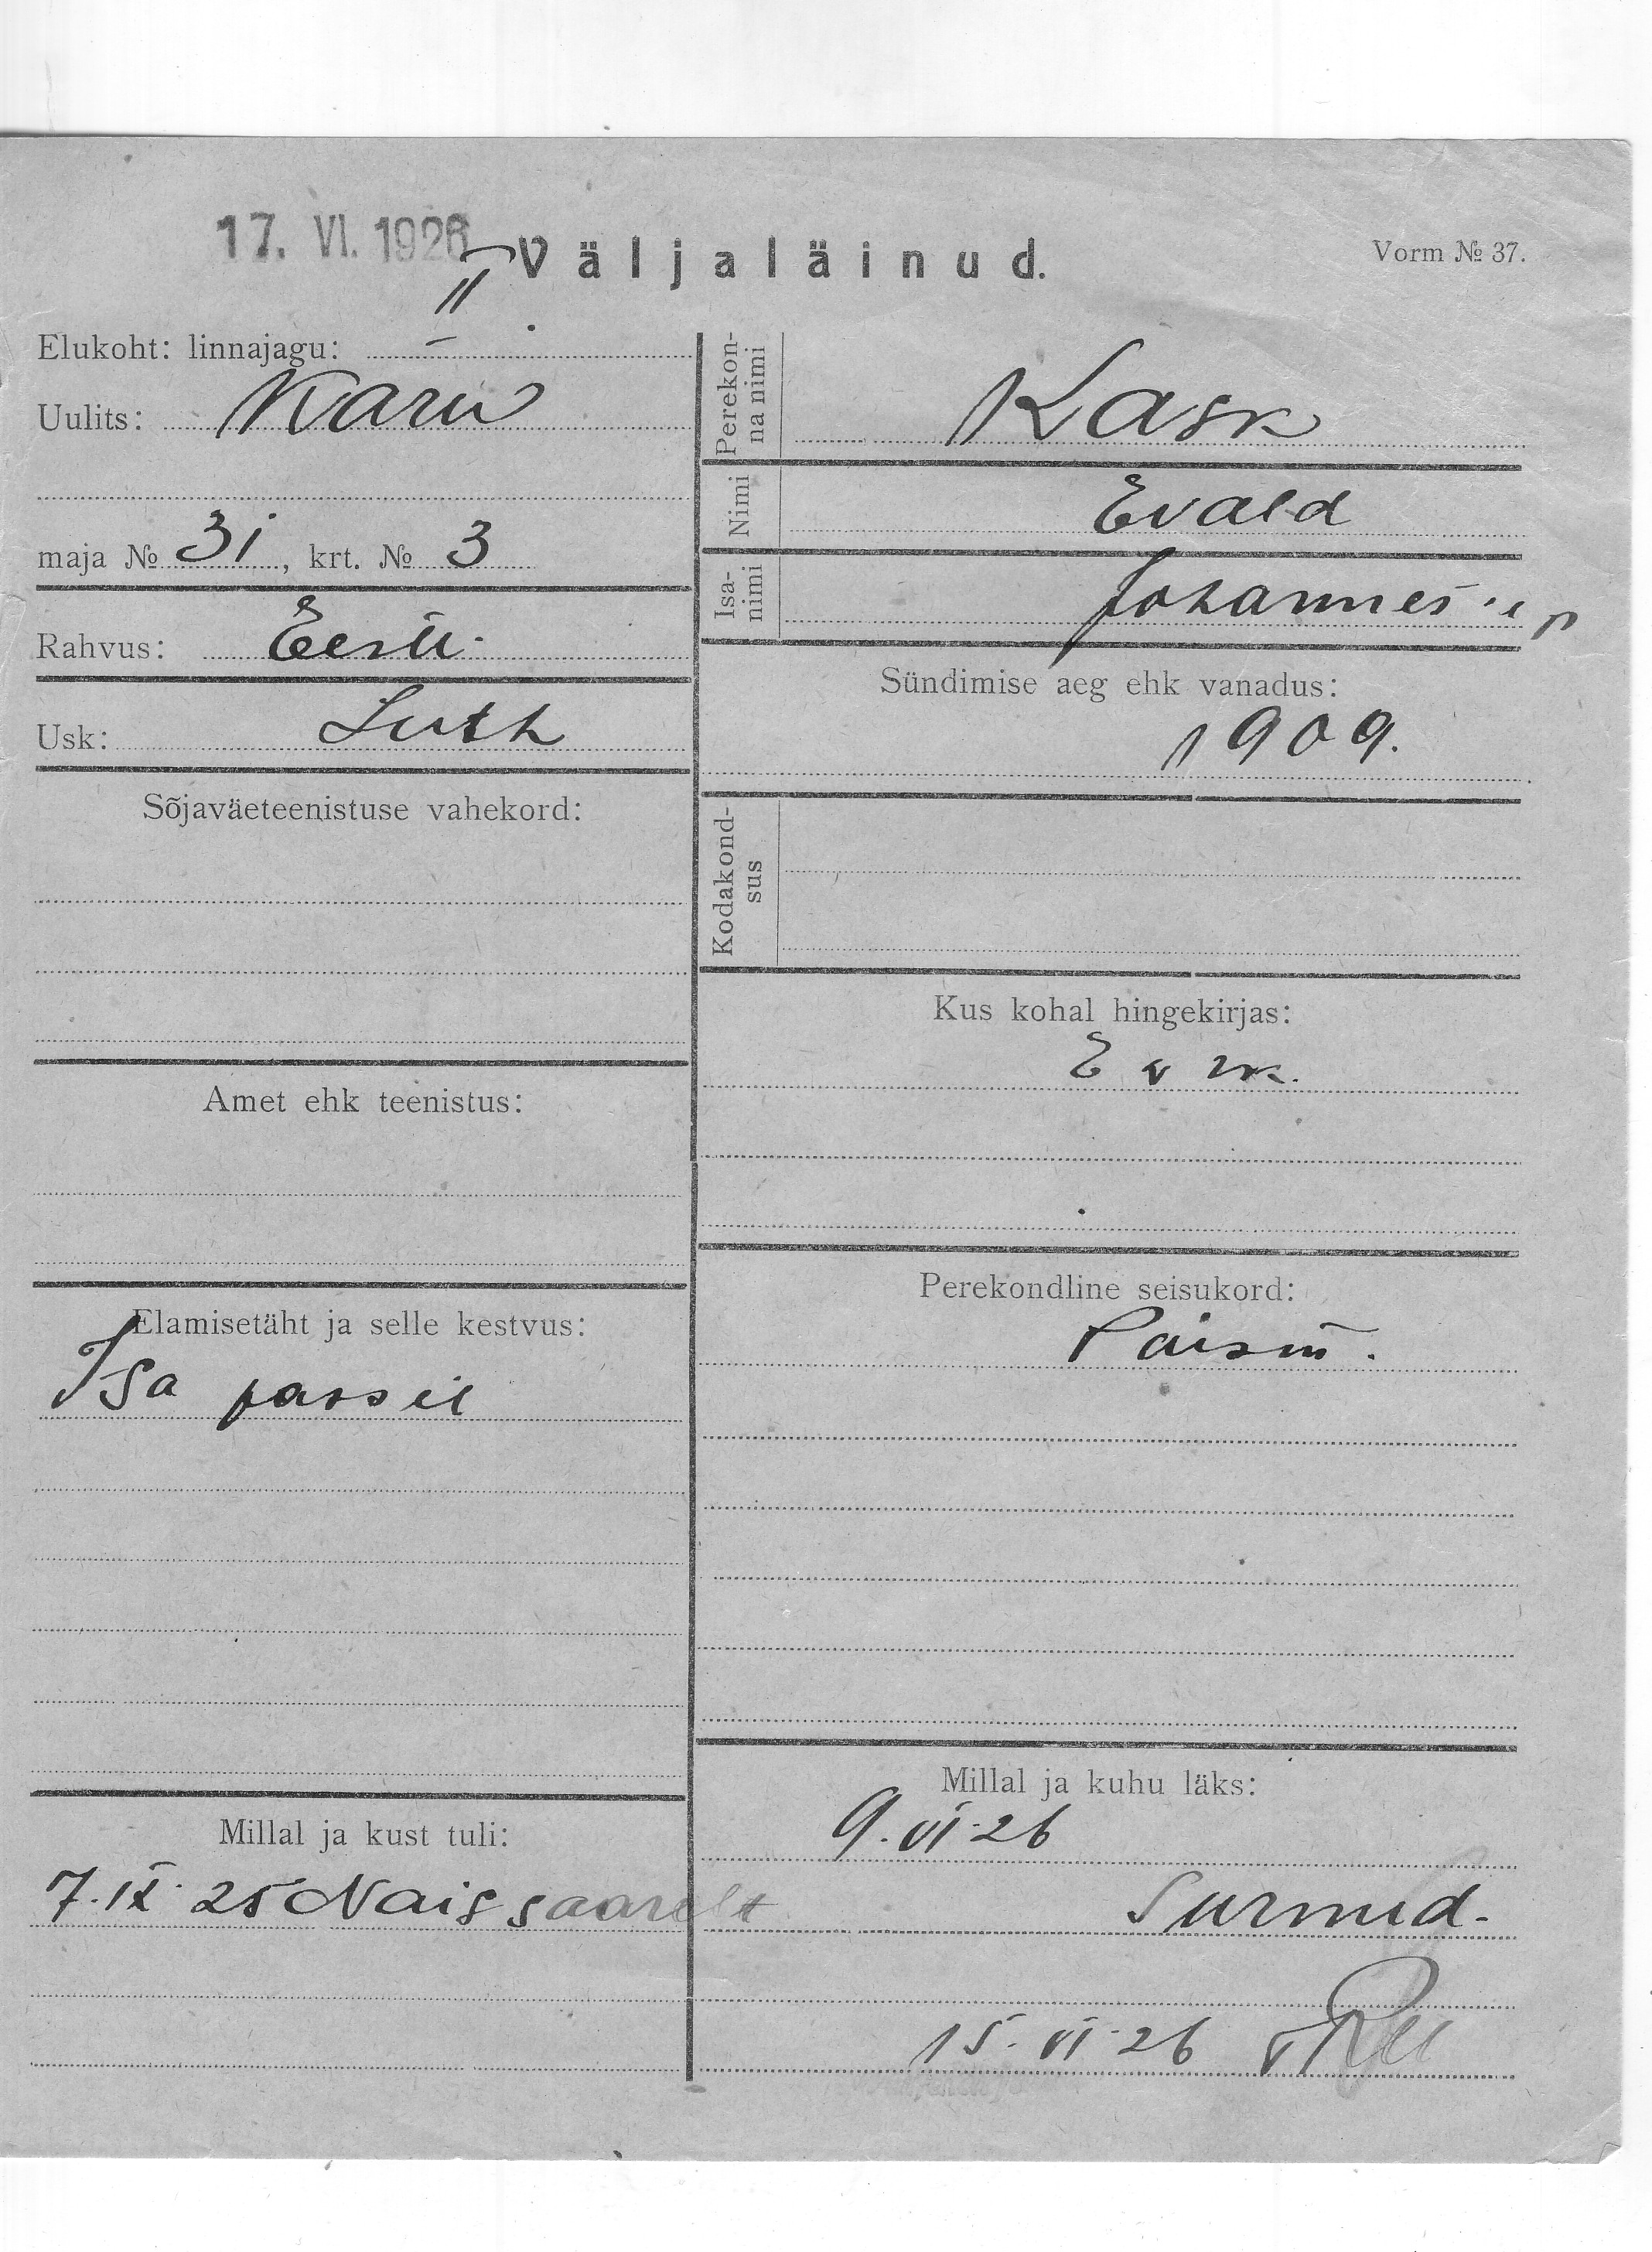 17. VI. 1926
Väljaläinud.
Vorm № 37.
Elukoht: linnajagu: II
Uulits: Karu
maja № 31, krt. № 3
Rahvus: Eesti.
Usk: Luth
Sõjaväeteenistuse vahekord:
Amet ehk teenistus:
Elamisetäht ja selle kestvus:
Isa passil
Millal ja kust tuli:
7.IX.25 Naissaarelt
Perekon-
na nimi
Kask
Nimi
Evald
Isa-
nimi
Johannes'e p
Sündimise aeg ehk vanadus:
1909.
Kodakond-
sus
Kus kohal hingekirjas:
Perekondline seisukord:
Millal ja kuhu läks:
9.VI.26
Surnud.
15.VI.26